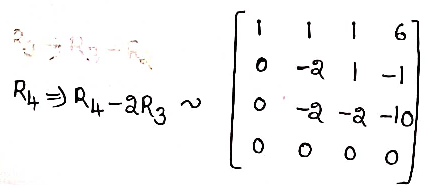 R₄ ⇒ R₄ - 2R₃ ~ [ 1 1 1 6
0 -2 1 -1
0 -2 -2 -10
0 0 0 0 ]